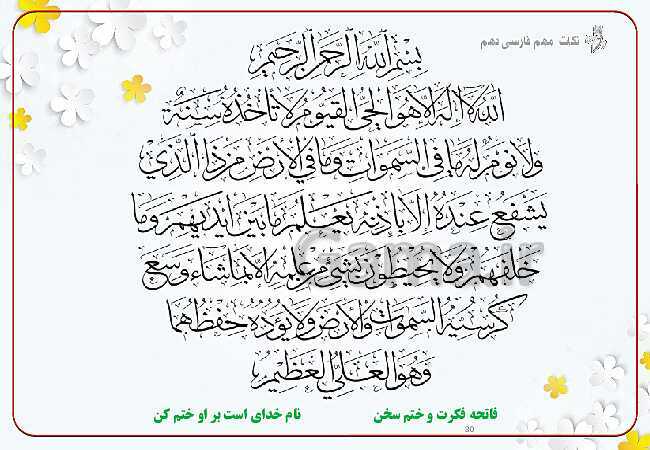 نکات مهم فارسی دهم
بِسْمِ اللهِ الرَّحْمٰنِ الرَّحِيمِ
اَللهُ لَا اِلٰهَ اِلَّا هُوَ الْحَيُّ الْقَيُّومُ لَا تَأْخُذُهُ سِنَةٌ
وَلَا نَوْمٌ لَهُ مَا فِي السَّمٰوَاتِ وَمَا فِي الْاَرْضِ مَنْ ذَا الَّذِي
يَشْفَعُ عِنْدَهُ اِلَّا بِاِذْنِهِ يَعْلَمُ مَا بَيْنَ اَيْدِيهِمْ وَمَا
خَلْفَهُمْ وَلَا يُحِيطُونَ بِشَيْءٍ مِنْ عِلْمِهِ اِلَّا بِمَا شَاءَ وَسِعَ
كُرْسِيُّهُ السَّمٰوَاتِ وَالْاَرْضَ وَلَا يَؤُدُهُ حِفْظُهُمَا
وَهُوَ الْعَلِيُّ الْعَظِيمُ
Gama.ir
فاتحه فکرت و ختم سخن نام خدای است بر او ختم کن
30